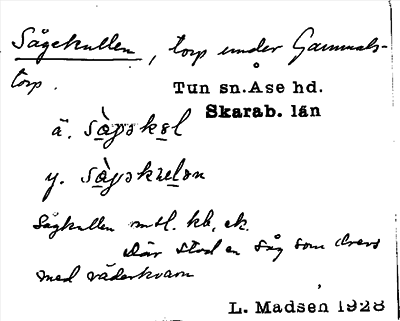 Sågekullen, torp under Gammals-
torp.
Tun sn. Åse hd.
Skarab. län
ä. sàgəkəl
y. sàgəkulən
Sågkullen mtl. kb, ek.
Där stod en såg som drevs
med väderkvarn
L. Madsen 1928